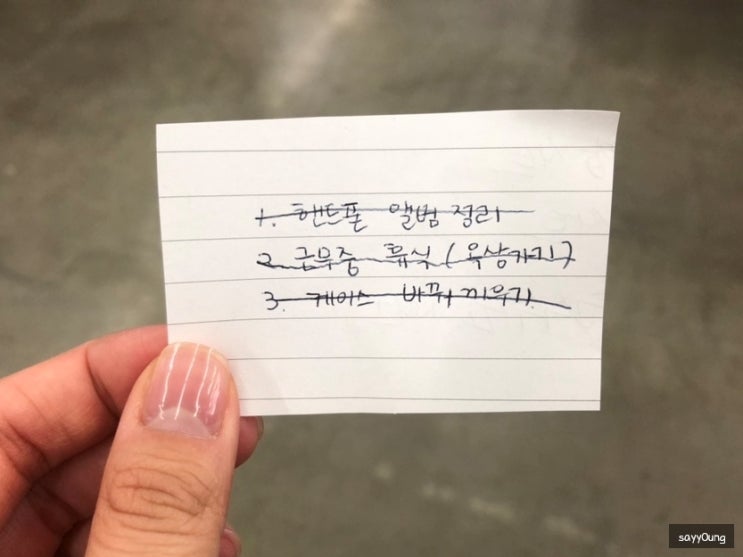 1. 핸드폰 앨범 정리
2. 근무중 휴식 (옥상가기)
3. 케이스 바꿔 끼우기
sayy0ung